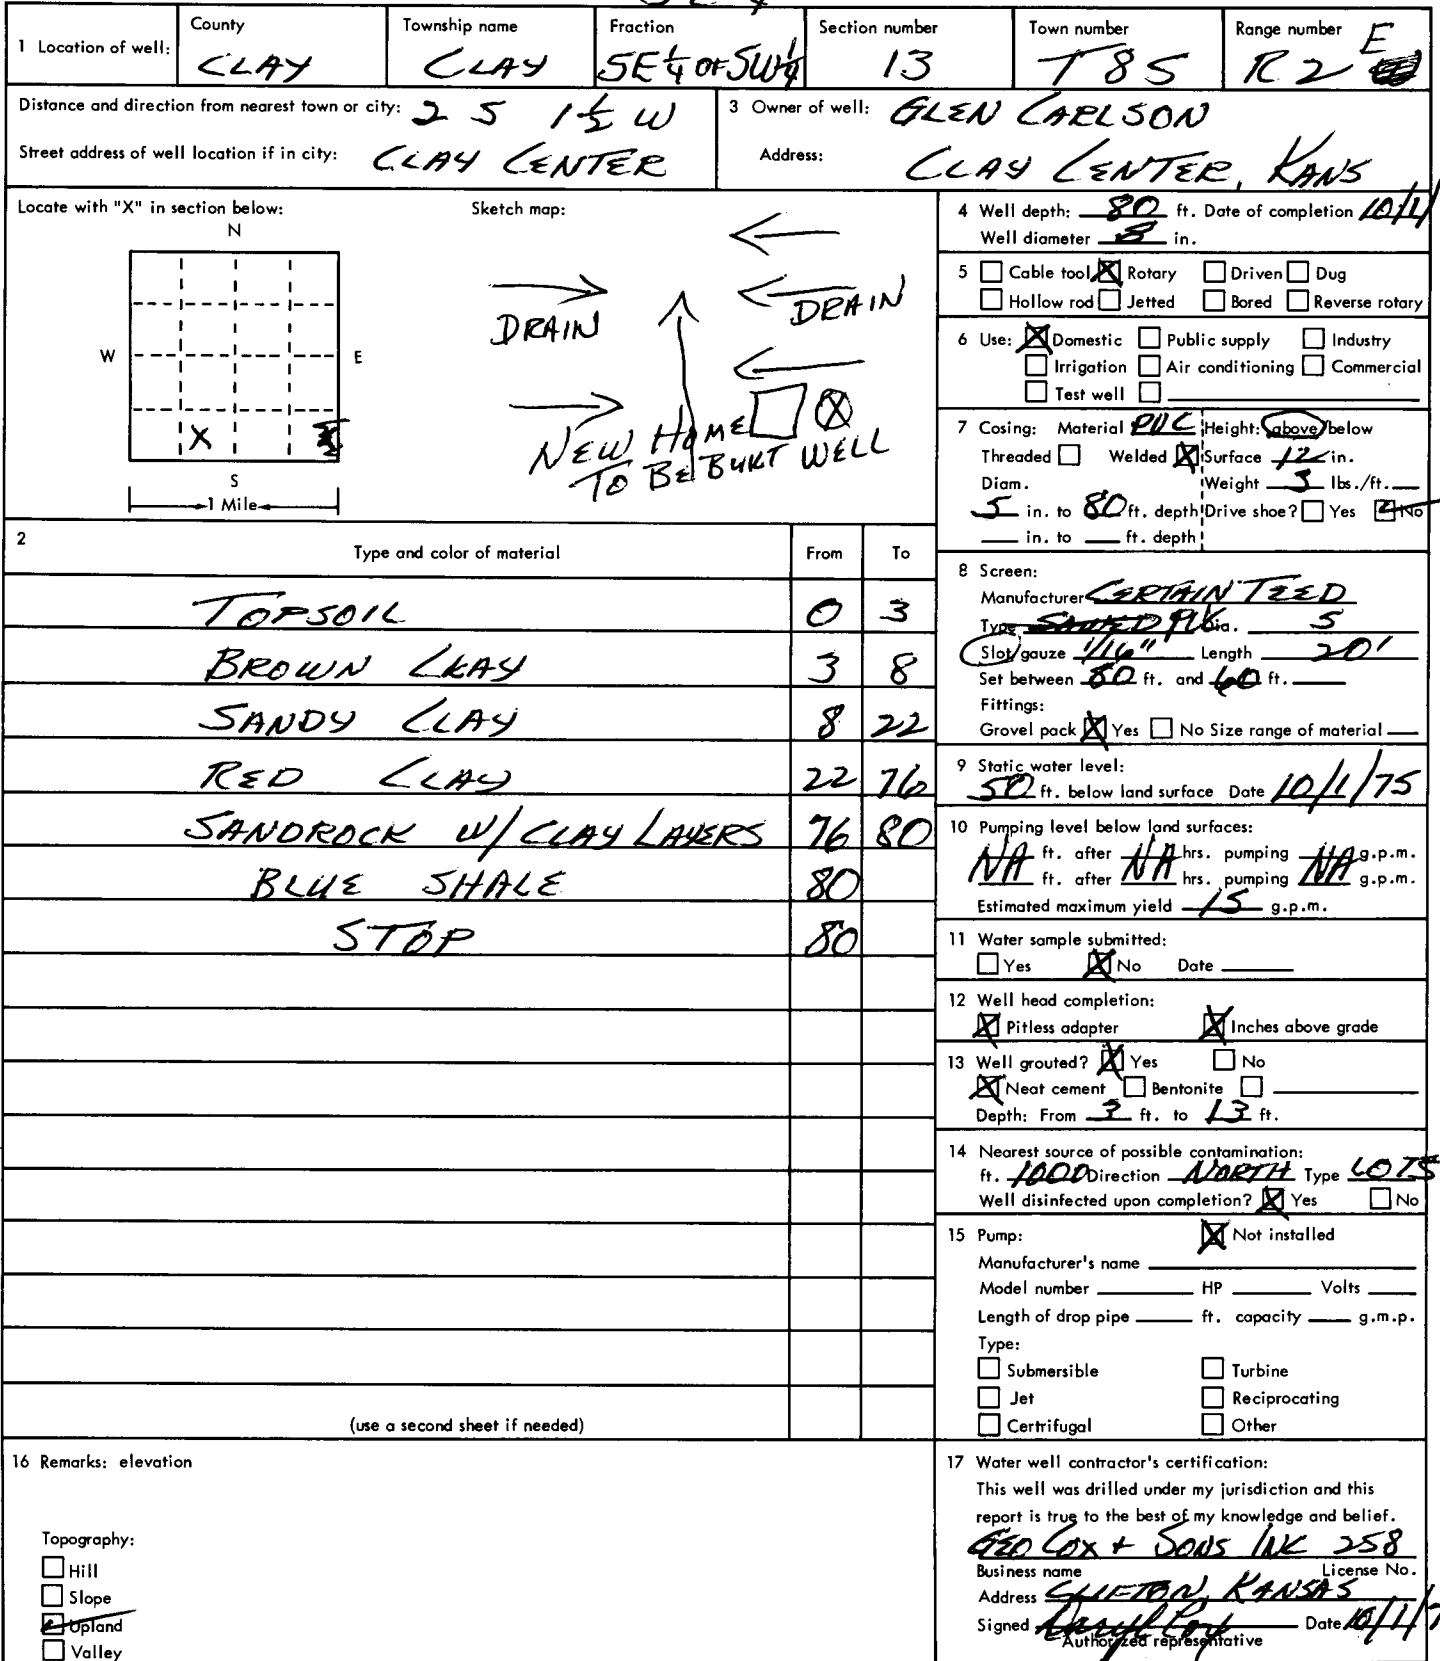 1 Location of well:
County
CLAY
Township name
CLAY
Fraction
SE 1/4 OF SW 1/4
Section number
13
Town number
T 8 S
Range number
R 2 E
Distance and direction from nearest town or city: 2 S 1 1/2 W
Street address of well location if in city: CLAY CENTER
3 Owner of well: GLEN CARLSON
Address: CLAY CENTER, KANS
Locate with "X" in section below:
N
W
E
X
S
1 Mile
Sketch map:
DRAIN
DRAIN
NEW HOME
TO BE BUILT WELL
2
Type and color of material From To
TOPSOIL 0 3
BROWN CLAY 3 8
SANDY CLAY 8 22
RED CLAY 22 76
SANDROCK W/ CLAY LAYERS 76 80
BLUE SHALE 80
STOP 80
(use a second sheet if needed)
4 Well depth: 80 ft. Date of completion 10/1/
Well diameter 8 in.
5 Cable tool X Rotary Driven Dug
Hollow rod Jetted Bored Reverse rotary
6 Use: X Domestic Public supply Industry
Irrigation Air conditioning Commercial
Test well
7 Cosing: Material PVC Height: above/below
Threaded Welded X Surface 12 in.
Diam. Weight 3 lbs./ft.
5 in. to 80 ft. depth Drive shoe? Yes No
in. to ft. depth
8 Screen:
Manufacturer CERTAIN TEED
Type PVC Dia. 5
Slot/gauze 1/16" Length 20'
Set between 80 ft. and 60 ft.
Fittings:
Grovel pack X Yes No Size range of material
9 Static water level:
50 ft. below land surface Date 10/1/75
10 Pumping level below land surfaces:
NA ft. after NA hrs. pumping NA g.p.m.
ft. after hrs. pumping g.p.m.
Estimated maximum yield 15 g.p.m.
11 Water sample submitted:
Yes X No Date
12 Well head completion:
X Pitless adapter X Inches above grade
13 Well grouted? X Yes No
X Neat cement Bentonite
Depth: From 3 ft. to 13 ft.
14 Nearest source of possible contamination:
ft. 1000 Direction NORTH Type LOTS
Well disinfected upon completion? X Yes No
15 Pump: X Not installed
Manufacturer's name
Model number HP Volts
Length of drop pipe ft. capacity g.m.p.
Type:
Submersible Turbine
Jet Reciprocating
Certrifugal Other
16 Remarks: elevation
Topography:
Hill
Slope
Upland
Valley
17 Water well contractor's certification:
This well was drilled under my jurisdiction and this
report is true to the best of my knowledge and belief.
GEO COX + SONS INC 258
Business name License No.
Address CLIFTON, KANSAS
Signed Daryl Cox Date 10/1/7
Authorized representative